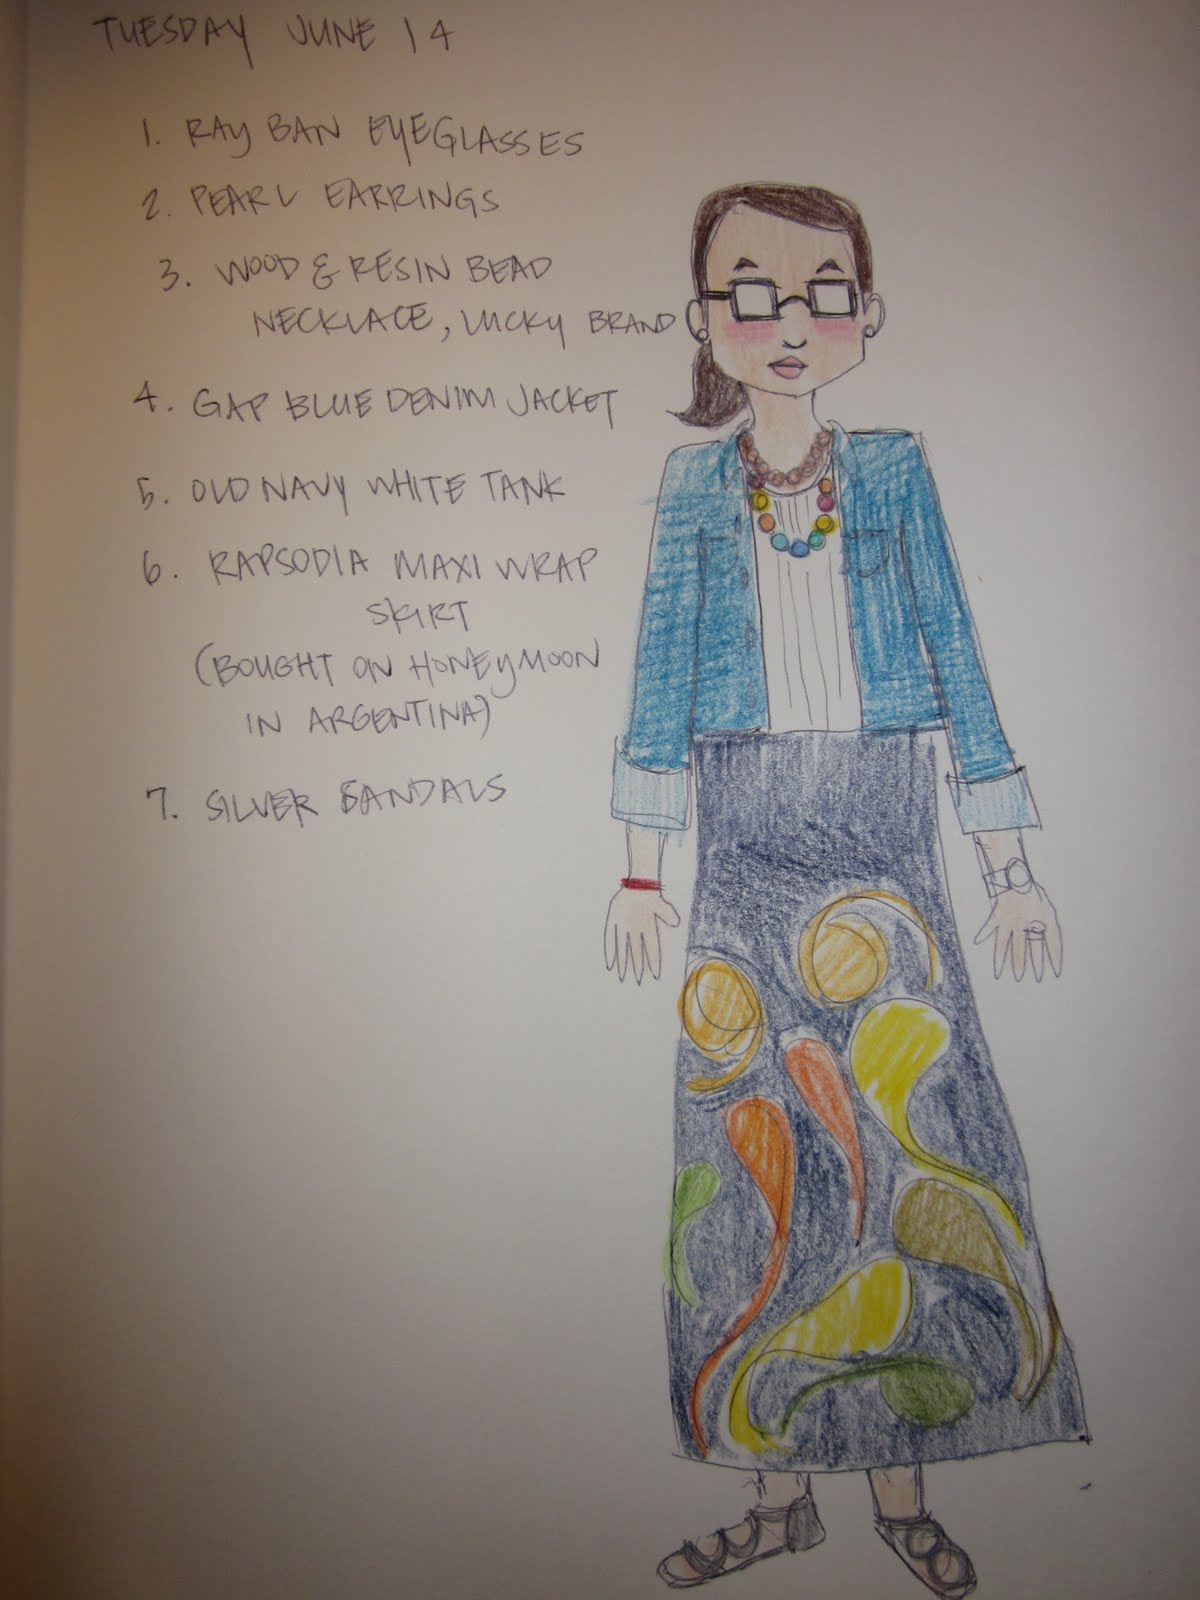 TUESDAY JUNE 14
1. RAY BAN EYEGLASSES
2. PEARL EARRINGS
3. WOOD & RESIN BEAD
NECKLACE, LUCKY BRAND
4. GAP BLUE DENIM JACKET
5. OLD NAVY WHITE TANK
6. RAPSODIA MAXI WRAP
SKIRT
(BOUGHT ON HONEYMOON
IN ARGENTINA)
7. SILVER SANDALS